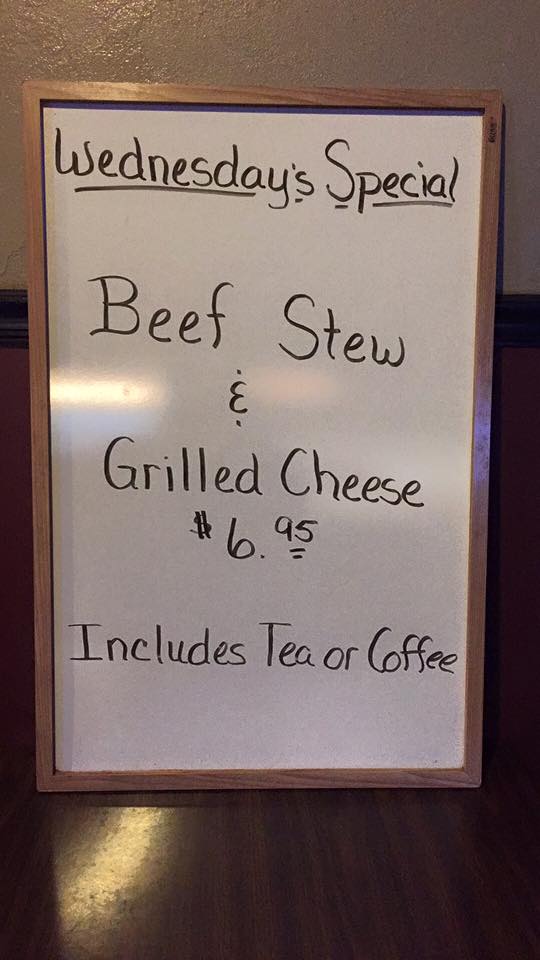 Wednesday's Special
Beef Stew
&
Grilled Cheese
$6.95
Includes Tea or Coffee